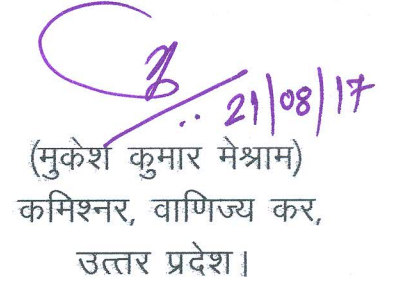 21/08/17
(मुकेश कुमार मेश्राम)
कमिश्नर, वाणिज्य कर,
उत्तर प्रदेश।